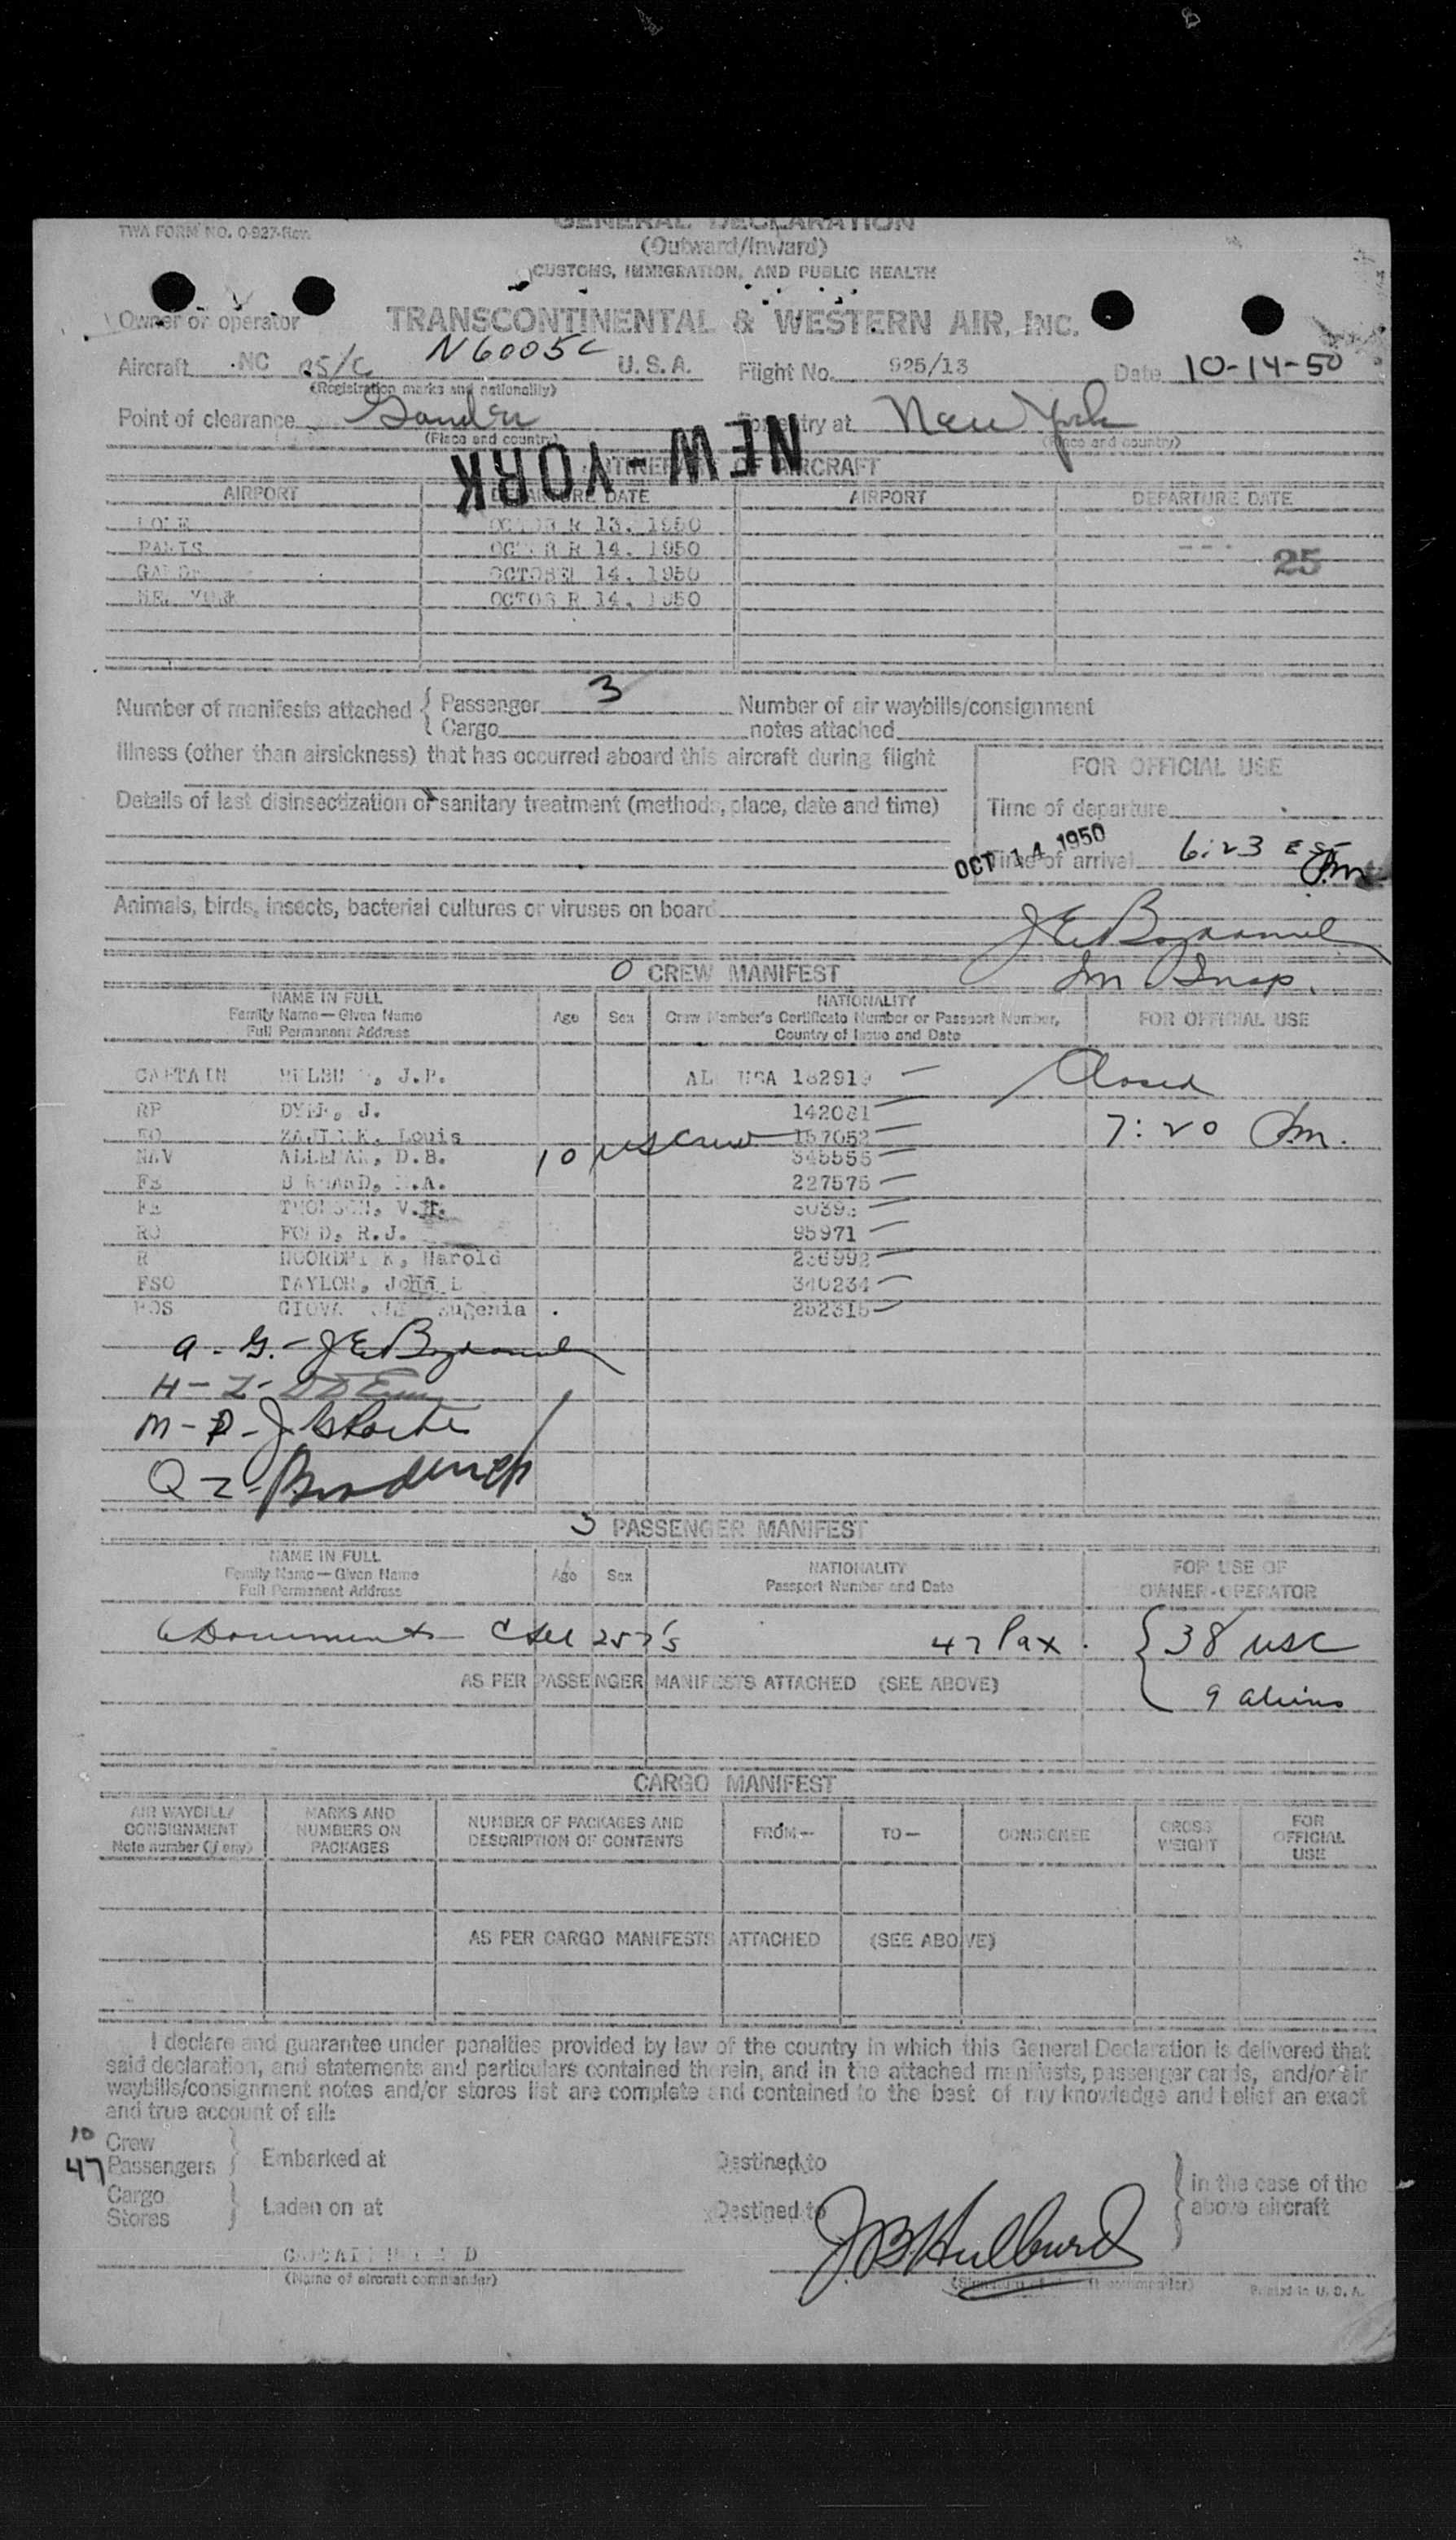 TWA FORM NO. O-927-Rev.
GENERAL DECLARATION
(Outward/Inward)
CUSTOMS, IMMIGRATION, AND PUBLIC HEALTH
Owner or operator TRANSCONTINENTAL & WESTERN AIR, INC.
Aircraft NC N6005C U.S.A. Flight No. 925/13 Date 10-14-50
(Registration marks and nationality)
Point of clearance Gander For entry at New York
(Place and country) (Place and country)
NEW-YORK
ITINERARY OF AIRCRAFT
AIRPORT DEPARTURE DATE AIRPORT DEPARTURE DATE
OCTOBER 13, 1950
PARIS OCTOBER 14, 1950
OCTOBER 14, 1950
25
NEW YORK OCTOBER 14, 1950
Number of manifests attached { Passenger 3 Number of air waybills/consignment
Cargo notes attached
Illness (other than airsickness) that has occurred aboard this aircraft during flight
FOR OFFICIAL USE
Details of last disinsectization or sanitary treatment (methods, place, date and time)
Time of departure
OCT 14 1950
Time of arrival 6:23 EST Pm
Animals, birds, insects, bacterial cultures or viruses on board
Im Insp.
0 CREW MANIFEST
NAME IN FULL
Family Name—Given Name
Full Permanent Address
Age Sex
NATIONALITY
Crew Member's Certificate Number or Passport Number,
Country of Issue and Date
FOR OFFICIAL USE
CAPTAIN J.B. ALL USA 182919 Closed
RP J. 142081
7:20 Pm.
Louis 157052
10 US Crew
NAV ALLEMAN, D.B. 345555
FE 227575
FE V.H.
RO FORD, R.J. 95971
R Harold 236992
FSO TAYLOR, John L 340234
HOS Eugenia 252315
a. G. -
H - Z -
M - P -
Q - Z -
3 PASSENGER MANIFEST
NAME IN FULL
Family Name—Given Name
Full Permanent Address
Age Sex
NATIONALITY
Passport Number and Date
FOR USE OF
OWNER-OPERATOR
6 Documents 257's 47 Pax. { 38 USC
AS PER PASSENGER MANIFESTS ATTACHED (SEE ABOVE)
9 aliens
CARGO MANIFEST
AIR WAYBILL/
CONSIGNMENT
Note number (if any)
MARKS AND
NUMBERS ON
PACKAGES
NUMBER OF PACKAGES AND
DESCRIPTION OF CONTENTS
FROM— TO— CONSIGNEE
GROSS
WEIGHT
FOR
OFFICIAL
USE
AS PER CARGO MANIFESTS ATTACHED (SEE ABOVE)
I declare and guarantee under penalties provided by law of the country in which this General Declaration is delivered that
said declaration, and statements and particulars contained therein, and in the attached manifests, passenger cards, and/or air
waybills/consignment notes and/or stores list are complete and contained to the best of my knowledge and belief an exact
and true account of all:
10 Crew
47 Passengers } Embarked at Destined to
Cargo
Stores } Laden on at Destined to
} in the case of the
above aircraft
J.B. Hulburd
(Name of aircraft commander) (Signature of aircraft commander) Printed in U. S. A.